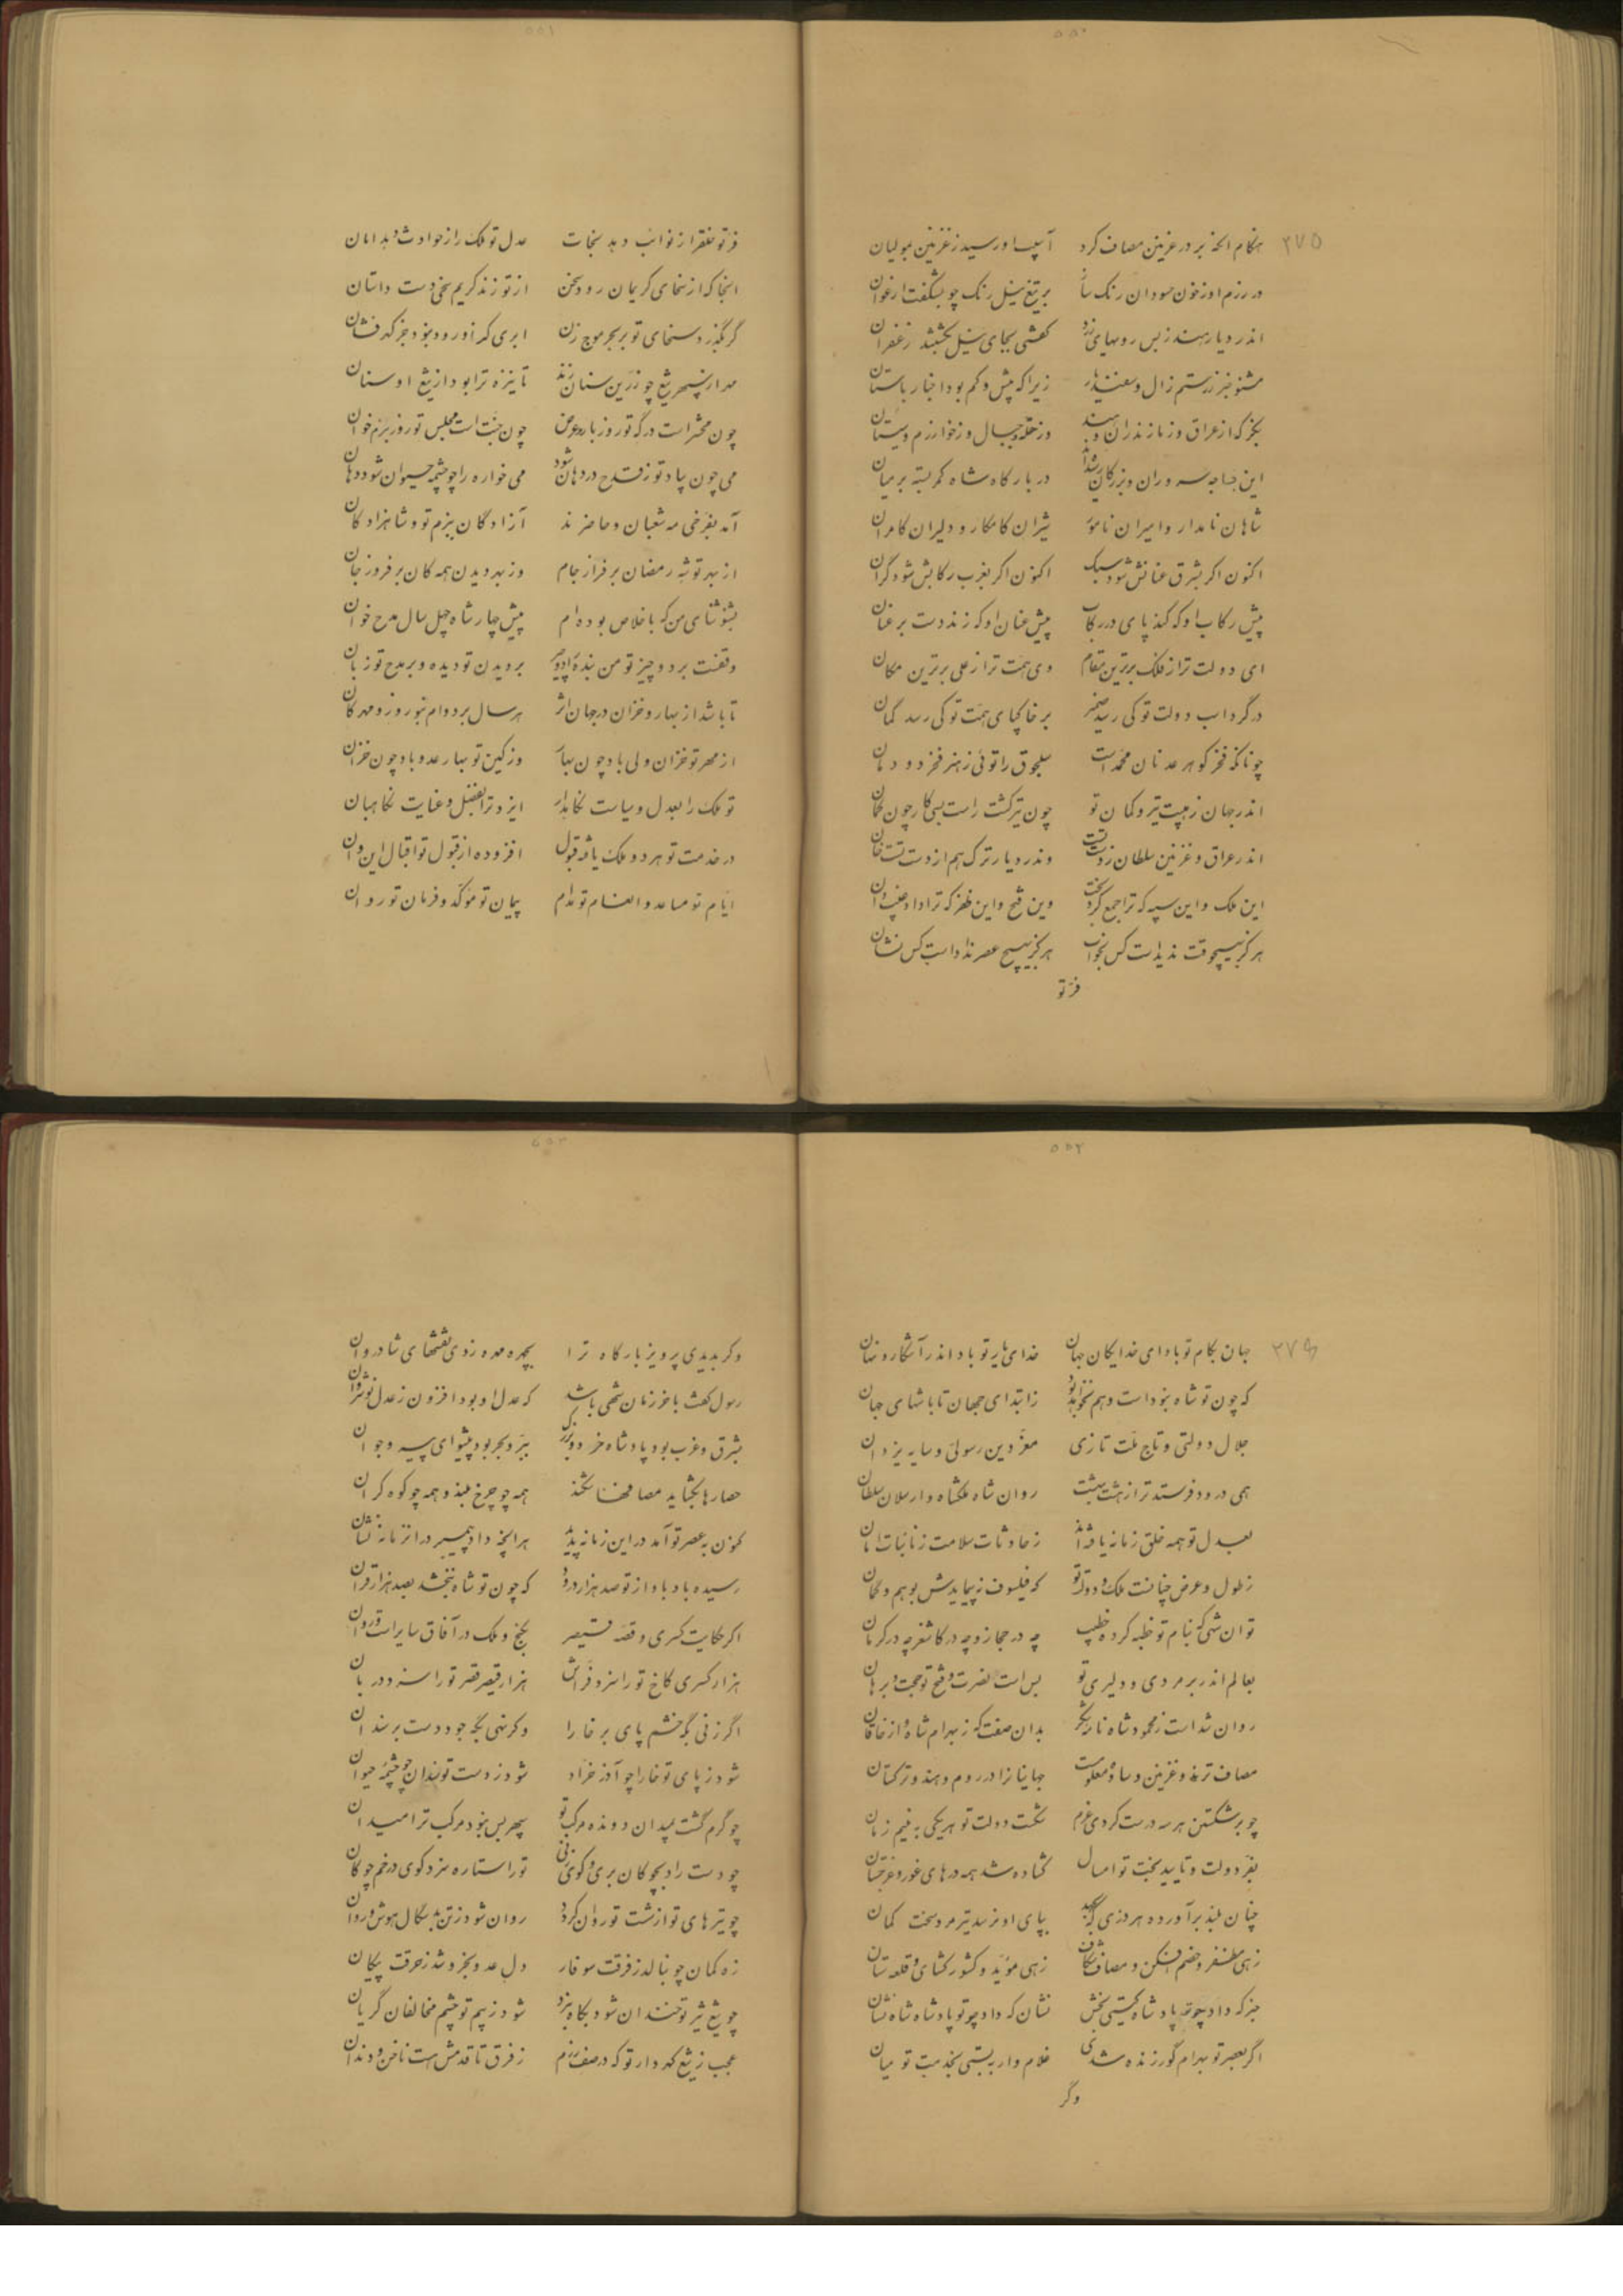 ۵۵۰
۲۷۵
هنگام الحذر بدر غزنین مصاف کرد آسیب او رسید ز غزنین بمولیان
در رزم او ز خون سودان رنک تیغ بر تیغ نیل رنک چو بشکفت ارغوان
اندر دیار هند ز بس رویهای زرد کفتی بجای نیل بکشتند زعفران
مشنو خبر ز رستم زال و سفندیار زیرا که بیش و کم بود اخبار باستان
بنکر که از عراق وز مازندران و هند وز حله و جبال وز خوارزم و سیستان
این خواجه سروران و بزرگان شدند در بارگاه شاه کمر بسته بر میان
شاهان نامدار و امیران نامور شیران کامکار و دلیران کامران
اکنون اکر بشرق عنانش شود سبک اکنون اکر بغرب رکابش شود گران
پیش رکاب او که کند پای در رکاب پیش عنان او که زند دست بر عنان
ای دولت ترا ز فلک برترین مقام وی همت ترا ز علی برترین مکان
در گرد اسب دولت تو کی رسد ضمیر بر خاکپای همت تو کی رسد گمان
چونانکه فخر گوهر عدنان محمد است سلجوق را توئی ز هنر فخر دودمان
اندر جهان ز هیبت تیر و کمان تو چون تیر گشت راست بسی کار چون کمان
اندر عراق و غزنین سلطان ز دست تست وندر دیار ترک هم از دست تست خان
این ملک و این سپه که ترا جمع کرد بخت وین فتح و این ظفر که ترا داد غیب دان
هرگز بهیچوقت ندیدست کس بخواب هرگز بهیچ عصر نداداست کس نشان
فر تو
۵۵۱
فر تو فقر را ز نوائب دهد نجات عدل تو ملک را ز حوادث دهد امان
آنجا که از سخای کریمان رود سخن از تو زند کریم سخی دست داستان
گر بگذرد سخای تو بر بحر موج زن ابری کز او رود نبود جز گهر فشان
مهر از سپهر تیغ چو زرین سنان زند تا نیزه ترا بود از تیغ او سنان
چون محشر است درگه تو روز بار و عرض چون جنت است مجلس تو روز بزم و خوان
می چون بیاد تو ز قدح در دهان شود می خواره را چو چشمه حیوان شود دهان
آمد بفرخی مه شعبان و حاضرند آزادگان ببزم تو و شاهزادگان
از بهر توشه رمضان بر فراز جام وز بهر دیدن همه کان بر فروز جان
بشنو ثنای من که باخلاص بوده‌ام پیش چهار شاه چهل سال مدح خوان
وقفست بر دو چیز تو من بنده را دو چیز بر دیدن تو دیده و بر مدح تو زبان
تا باشد از بهار و خزان در جهان اثر هر سال بر دوام بنوروز و مهرگان
از مهر تو خزان ولی باد چون بهار وز کین تو بهار عدو باد چون خزان
تو ملک را بعدل و سیاست نگاهدار ایزد ترا بفضل و عنایت نگاهبان
در خدمت تو هر دو ملک یافته قبول افزوده از قبول تو اقبال این و آن
ایام تو مساعد و انعام تو مدام پیمان تو مؤکد و فرمان تو روان
۵۵۲
۲۷۶
جهان بکام تو بادا ای خدایگان جهان خدای یار تو باد اندر آشکار و نهان
که چون تو شاه نبوداست و هم نخواهد بود ز ابتدای جهان تا بانتهای جهان
جلال دولتی و تاج ملت تازی معز دین رسولی و سایه یزدان
همی درود فرستد ترا ز هشت بهشت روان شاه ملکشاه و ارسلان سلطان
بعدل تو همه خلق زمانه یافته‌اند ز حادثات سلامت ز نائبات امان
ز طول و عرض چنانست ملک و دولت تو که فیلسوف نپیمایدش بوهم و گمان
تو آن شهی که بنام تو خطبه کرده خطیب چه در حجاز و چه در کاشغر چه در کرمان
بعالم اندر بر مردی و دلیری تو بس است نصرت و فتح تو حجت و برهان
روان شداست ز محمود شاه نام بشکر بدان صفت که ز بهرام شاه و از خاقان
مصاف ترمذ و غزنین و ساوه معلومست جهانیان را در روم و هند و ترکستان
چو بر شکستن هر سه درست کردی عزم شکست دولت تو هر یکی به نیم زمان
بفر دولت و تایید بخت تو امسال گشاده شد همه درهای غور و غرجستان
چنان بلند برآورده هر دزی که بجهد بپای او نرسد تیر مرد سخت کمان
زهی مظفر و خصم افکن و مصاف شکاف زهی مؤید و کشور گشای و قلعه ستان
جز که داد چو تو پادشاه گیتی بخش نشان که داد چو تو پادشاه شاه نشان
اگر بعصر تو بهرام گور زنده شدی غلام وار ببستی بخدمت تو میان
وگر
۵۵۳
وگر بدیدی پرویز بارگاه ترا بچهره مهره زدی نقشهای شادروان
رسول گفت بآخر زمان شهی باشد که عدل او بود افزون ز عدل نوشروان
بشرق و غرب بود پادشاه خرد و بزرگ ببر و بحر بود پیشوای پیر و جوان
حصارها بگشاید مصافها شکند همه چو چرخ بلند و همه چو کوه گران
کنون به عصر تو آمد در این زمانه پدید هر آنچه داد پیمبر در آن زمانه نشان
رسیده باد باو از تو صد هزار درود که چون تو شاه نبخشد بصد هزار قران
اگر حکایت کسری و قصه قیصر بگنج و ملک در آفاق سایر است و روان
هزار کسری کاخ تو را سزد فراش هزار قیصر قصر تو را سزد دربان
اگر زنی گه خشم پای بر خارا وگر نهی بگه جود دست بر سندان
شود ز پای تو خارا چو آذر خراد شود ز دست تو سندان چو چشمه حیوان
چو گرم گشت بمیدان دونده مرکب تو سپهر بس نبود مرکب ترا میدان
چو دست زاد بچوگان بری و گوی زنی تو را ستاره سزد گوی در خم چوگان
چو تیرهای تو از شست تو روان گردد روان شود ز تن بدسگال هوش و روان
زه کمان چو بنالد ز فرقت سوفار دل عدو بخروشد ز حرقت پیکان
چو تیغ تیز تو خندان شود بگاه نبرد شود ز بیم تو چشم مخالفان گریان
عجب ز تیغ گهردار تو که در صف رزم ز فرق تا قدمش هست ناخن و دندان